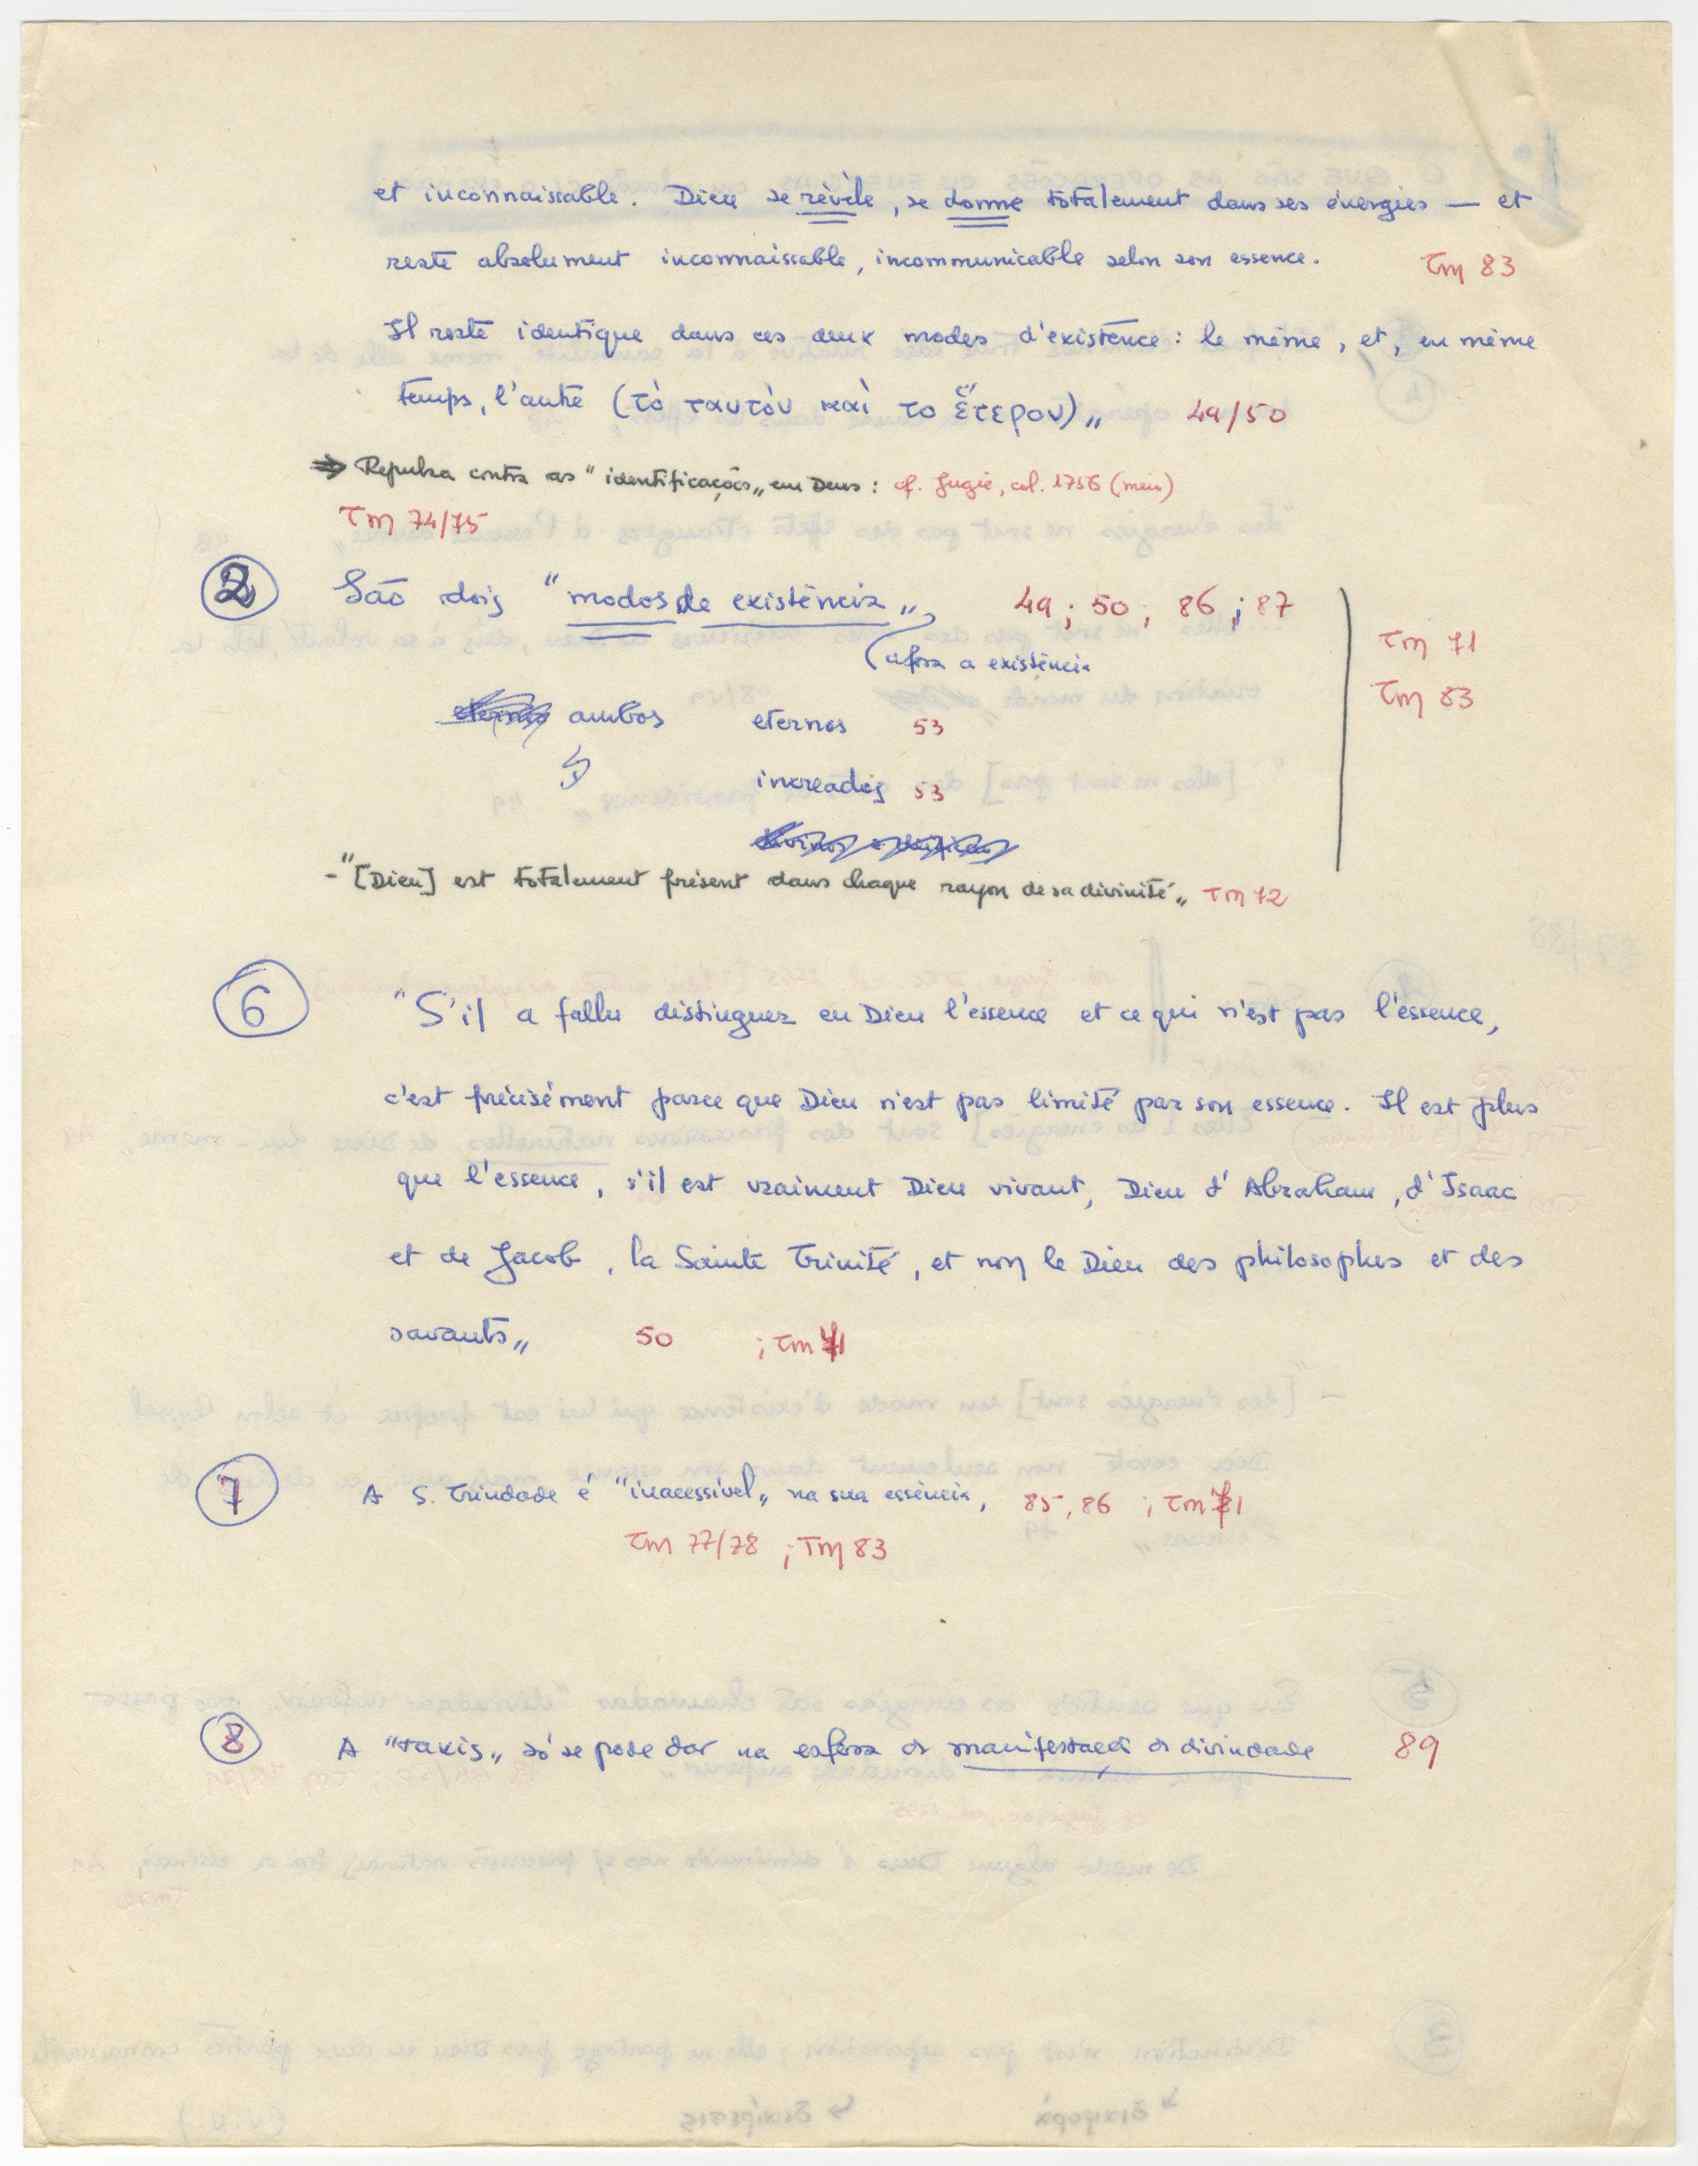 et inconnaissable. Dieu se révèle, se donne totalement dans ses énergies — et
reste absolument inconnaissable, incommunicable selon son essence. TM 83
Il reste identique dans ces deux modes d'existence : le même, et, en même
temps, l'autre (τὸ ταυτὸν καὶ το ἕτερον)„ 49/50
⇒ Repulsa contra as "identificações„ em Deus : cf. Jugie, col. 1756 (meio)
TM 74/75
2 São dois "modos de existência„, 49 ; 50 ; 86 ; 87
(afora a existência
TM 71
TM 83
ambos eternos 53
increados 53
- "[Dieu] est totalement présent dans chaque rayon de sa divinité„ TM 72
6 "S'il a fallu distinguer en Dieu l'essence et ce qui n'est pas l'essence,
c'est précisément parce que Dieu n'est pas limité par son essence. Il est plus
que l'essence, s'il est vraiment Dieu vivant, Dieu d'Abraham, d'Isaac
et de Jacob, la Sainte Trinité, et non le Dieu des philosophes et des
savants„ 50 ; TM 71
7 A S. Trindade é "inacessível„ na sua essência, 85, 86 ; TM 71
TM 77/78 ; TM 83
8 A "taxis„ só se pode dar na esfera da manifestação da divindade 89